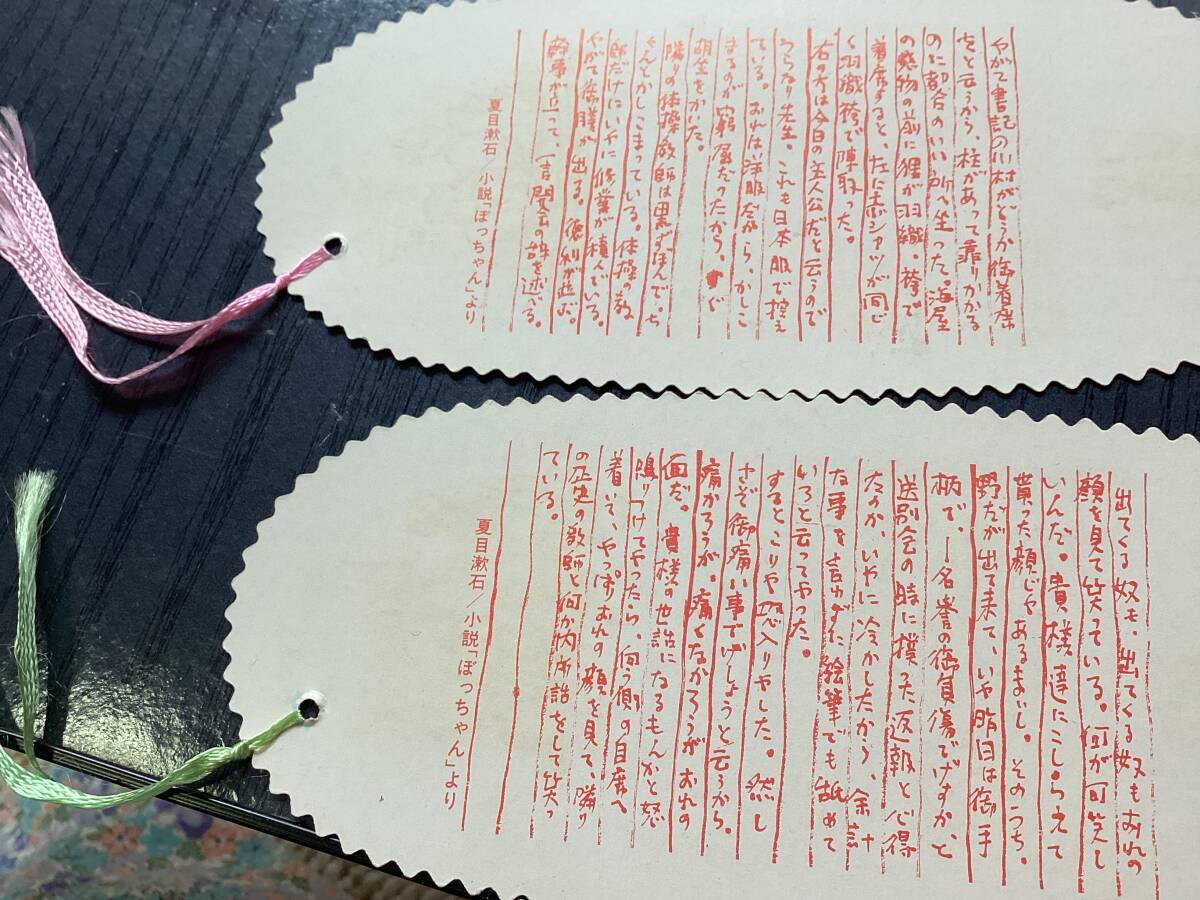 やがて書記の川村がどうか御着席
をと云うから、柱があって靠りかかる
のに都合のいい所へ坐った。海屋
の懸物の前に狸が羽織、袴で
着席すると、左に赤シャツが同じ
く羽織袴で陣取った。
右の方は今日の主人公だと云うので
うらなり先生、これも日本服で控え
ている。おれは洋服だから、かしこ
まるのが窮屈だったから、すぐ
胡坐をかいた。
隣りの体操教師は黒ずぼんで、ち
ゃんとかしこまっている。体操の教
師だけにいやに修業が積んでいる。
やがて御膳が出る。徳利が並ぶ。
幹事が立って、一言開会の辞を述べる。
夏目漱石/小説「ぼっちゃん」より
出てくる奴も、出てくる奴もおれの
顔を見て笑っている。何が可笑し
いんだ。貴様達にこしらえて
貰った顔じゃあるまいし。そのうち、
野だが出て来て、いや昨日は御手
柄で、ー名誉の御負傷でげすか、と
送別会の時に撲った返報と心得
たのか、いやに冷かしたから、余計
な事を言わずに絵筆でも舐めて
いろと云ってやった。
するとこりゃ恐入りやした。然し
さぞ御痛い事でげしょうと云うから、
痛かろうが、痛くなかろうがおれの
面だ。貴様の世話になるもんかと怒
鳴りつけてやったら、向う側の自席へ
着いて、やっぱりおれの顔を見て、隣り
の歴史の教師と何か内所話をして笑っ
ている。
夏目漱石/小説「ぼっちゃん」より